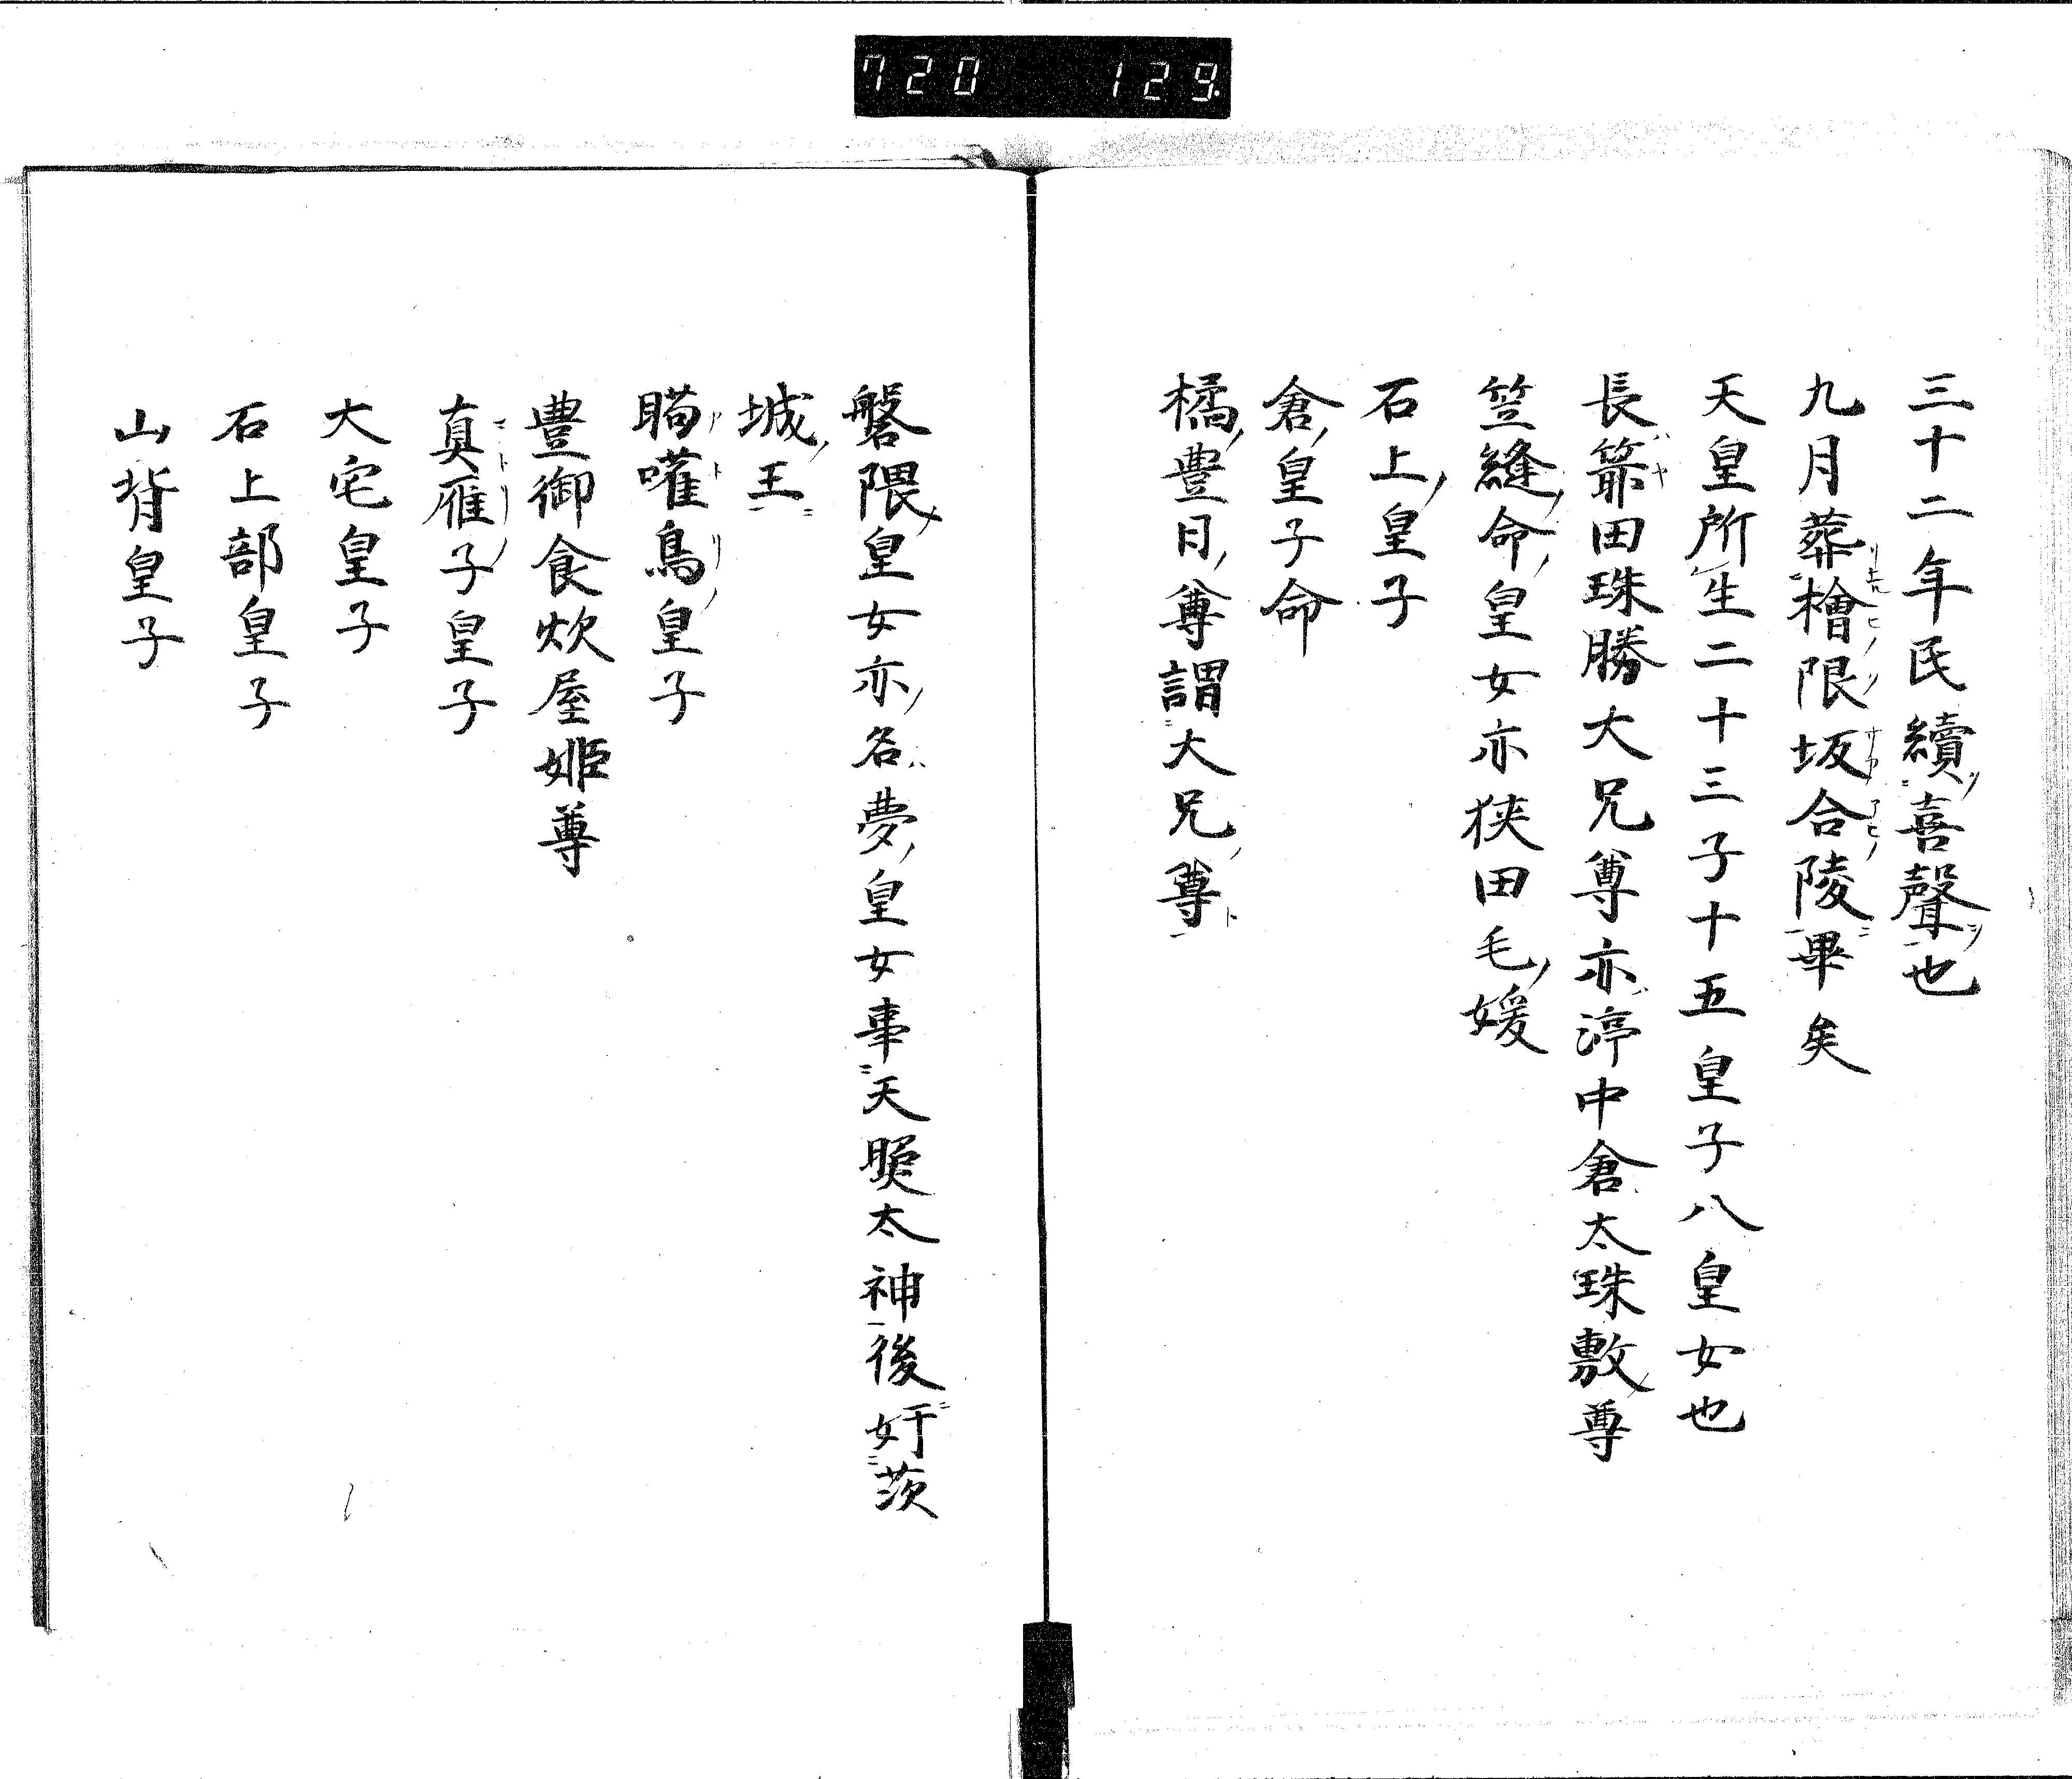 720 129.
三十二年民續喜聲也
九月葬檜隈坂合陵畢矣
天皇所生二十三子十五皇子八皇女也
長箭田珠勝大兄尊亦渟中倉太珠敷尊
笠縫命皇女亦狹田毛媛
石上皇子
倉皇子命
橘豊日尊謂大兄尊
磐隈皇女亦名夢皇女事天照太神後奸茨
城王
鳥皇子
豊御食炊屋姫尊
真雁子皇子
大宅皇子
石上部皇子
山背皇子